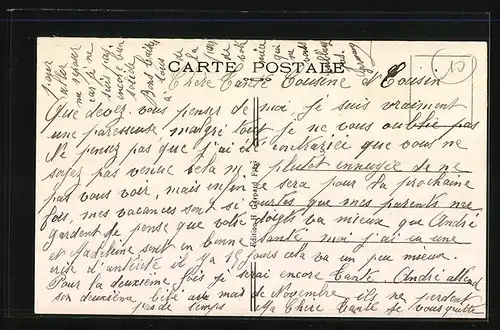 CARTE POSTALE
10
Chère Tante Cousine et Cousin
Que devez vous penser de moi, je suis vraiment
une paresseuse, malgré tout je ne vous oublie pas
Ne pensez pas que j'ai été contrariée que vous ne
soyez pas venue cela m'a plutôt ennuyée de ne
pas vous voir, mais enfin ce sera pour la prochaine
fois, mes vacances sont si courtes que mes parents me
gardent je pense que votre doigts va mieux que André
et Madeleine sont en bonne santé moi j'ai eu une
crise d'entérite il y a 15 jours cela va un peu mieux.
Pour la deuxième fois je serai encore Tante. André attend
son deuxième bébé au mois de Novembre ils ne perdent
pas de temps Ma Chère Tante je vous quitte
pour
aller
me reposer
car je ne
suis pas
encore bien
solide
à tous
de
la
qui
Editions